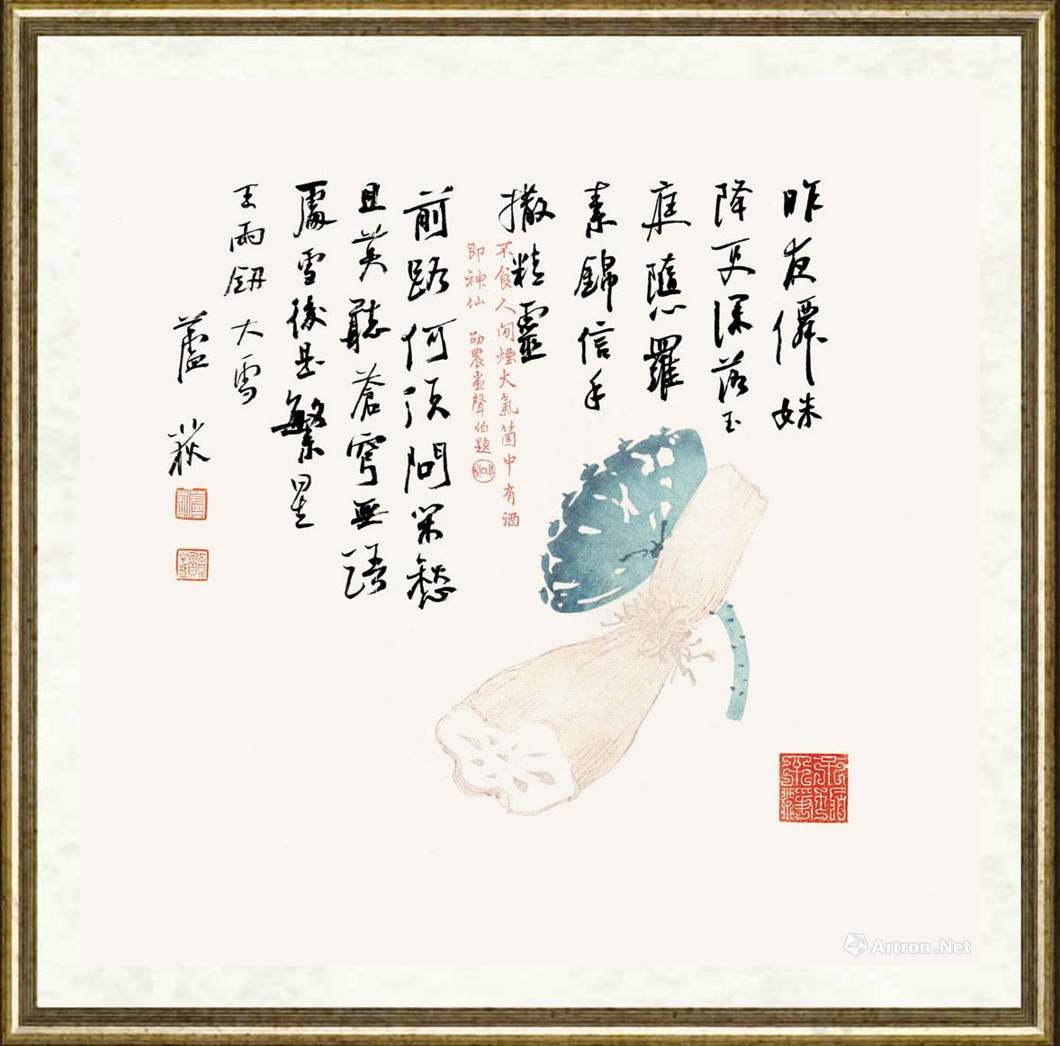 昨夜僊姝
降更深落玉
庭隨羅
素錦信手
撒精靈
前路何須問笑愁
且莫聽蒼穹無語
處雪後是繁星
王雨鈕大雪
蘆荻
不食人間煙火氣箇中有酒
即神仙 劭農畫聲伯題
Artron.Net